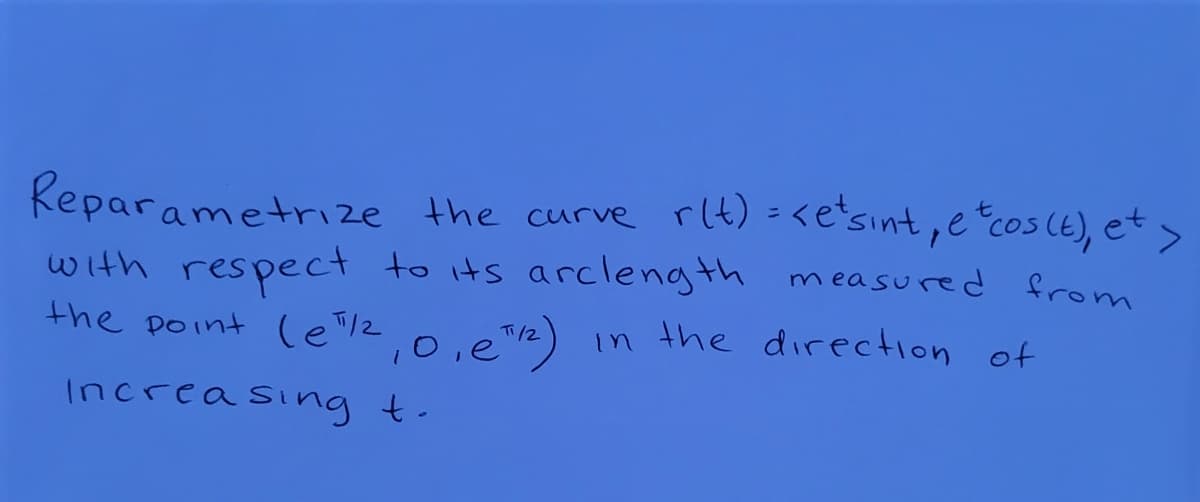 Reparametrize the curve r(t) = <e^t sint, e^t cos(t), e^t>
with respect to its arclength measured from
the point (e^π/2, 0, e^π/2) in the direction of
Increasing t.